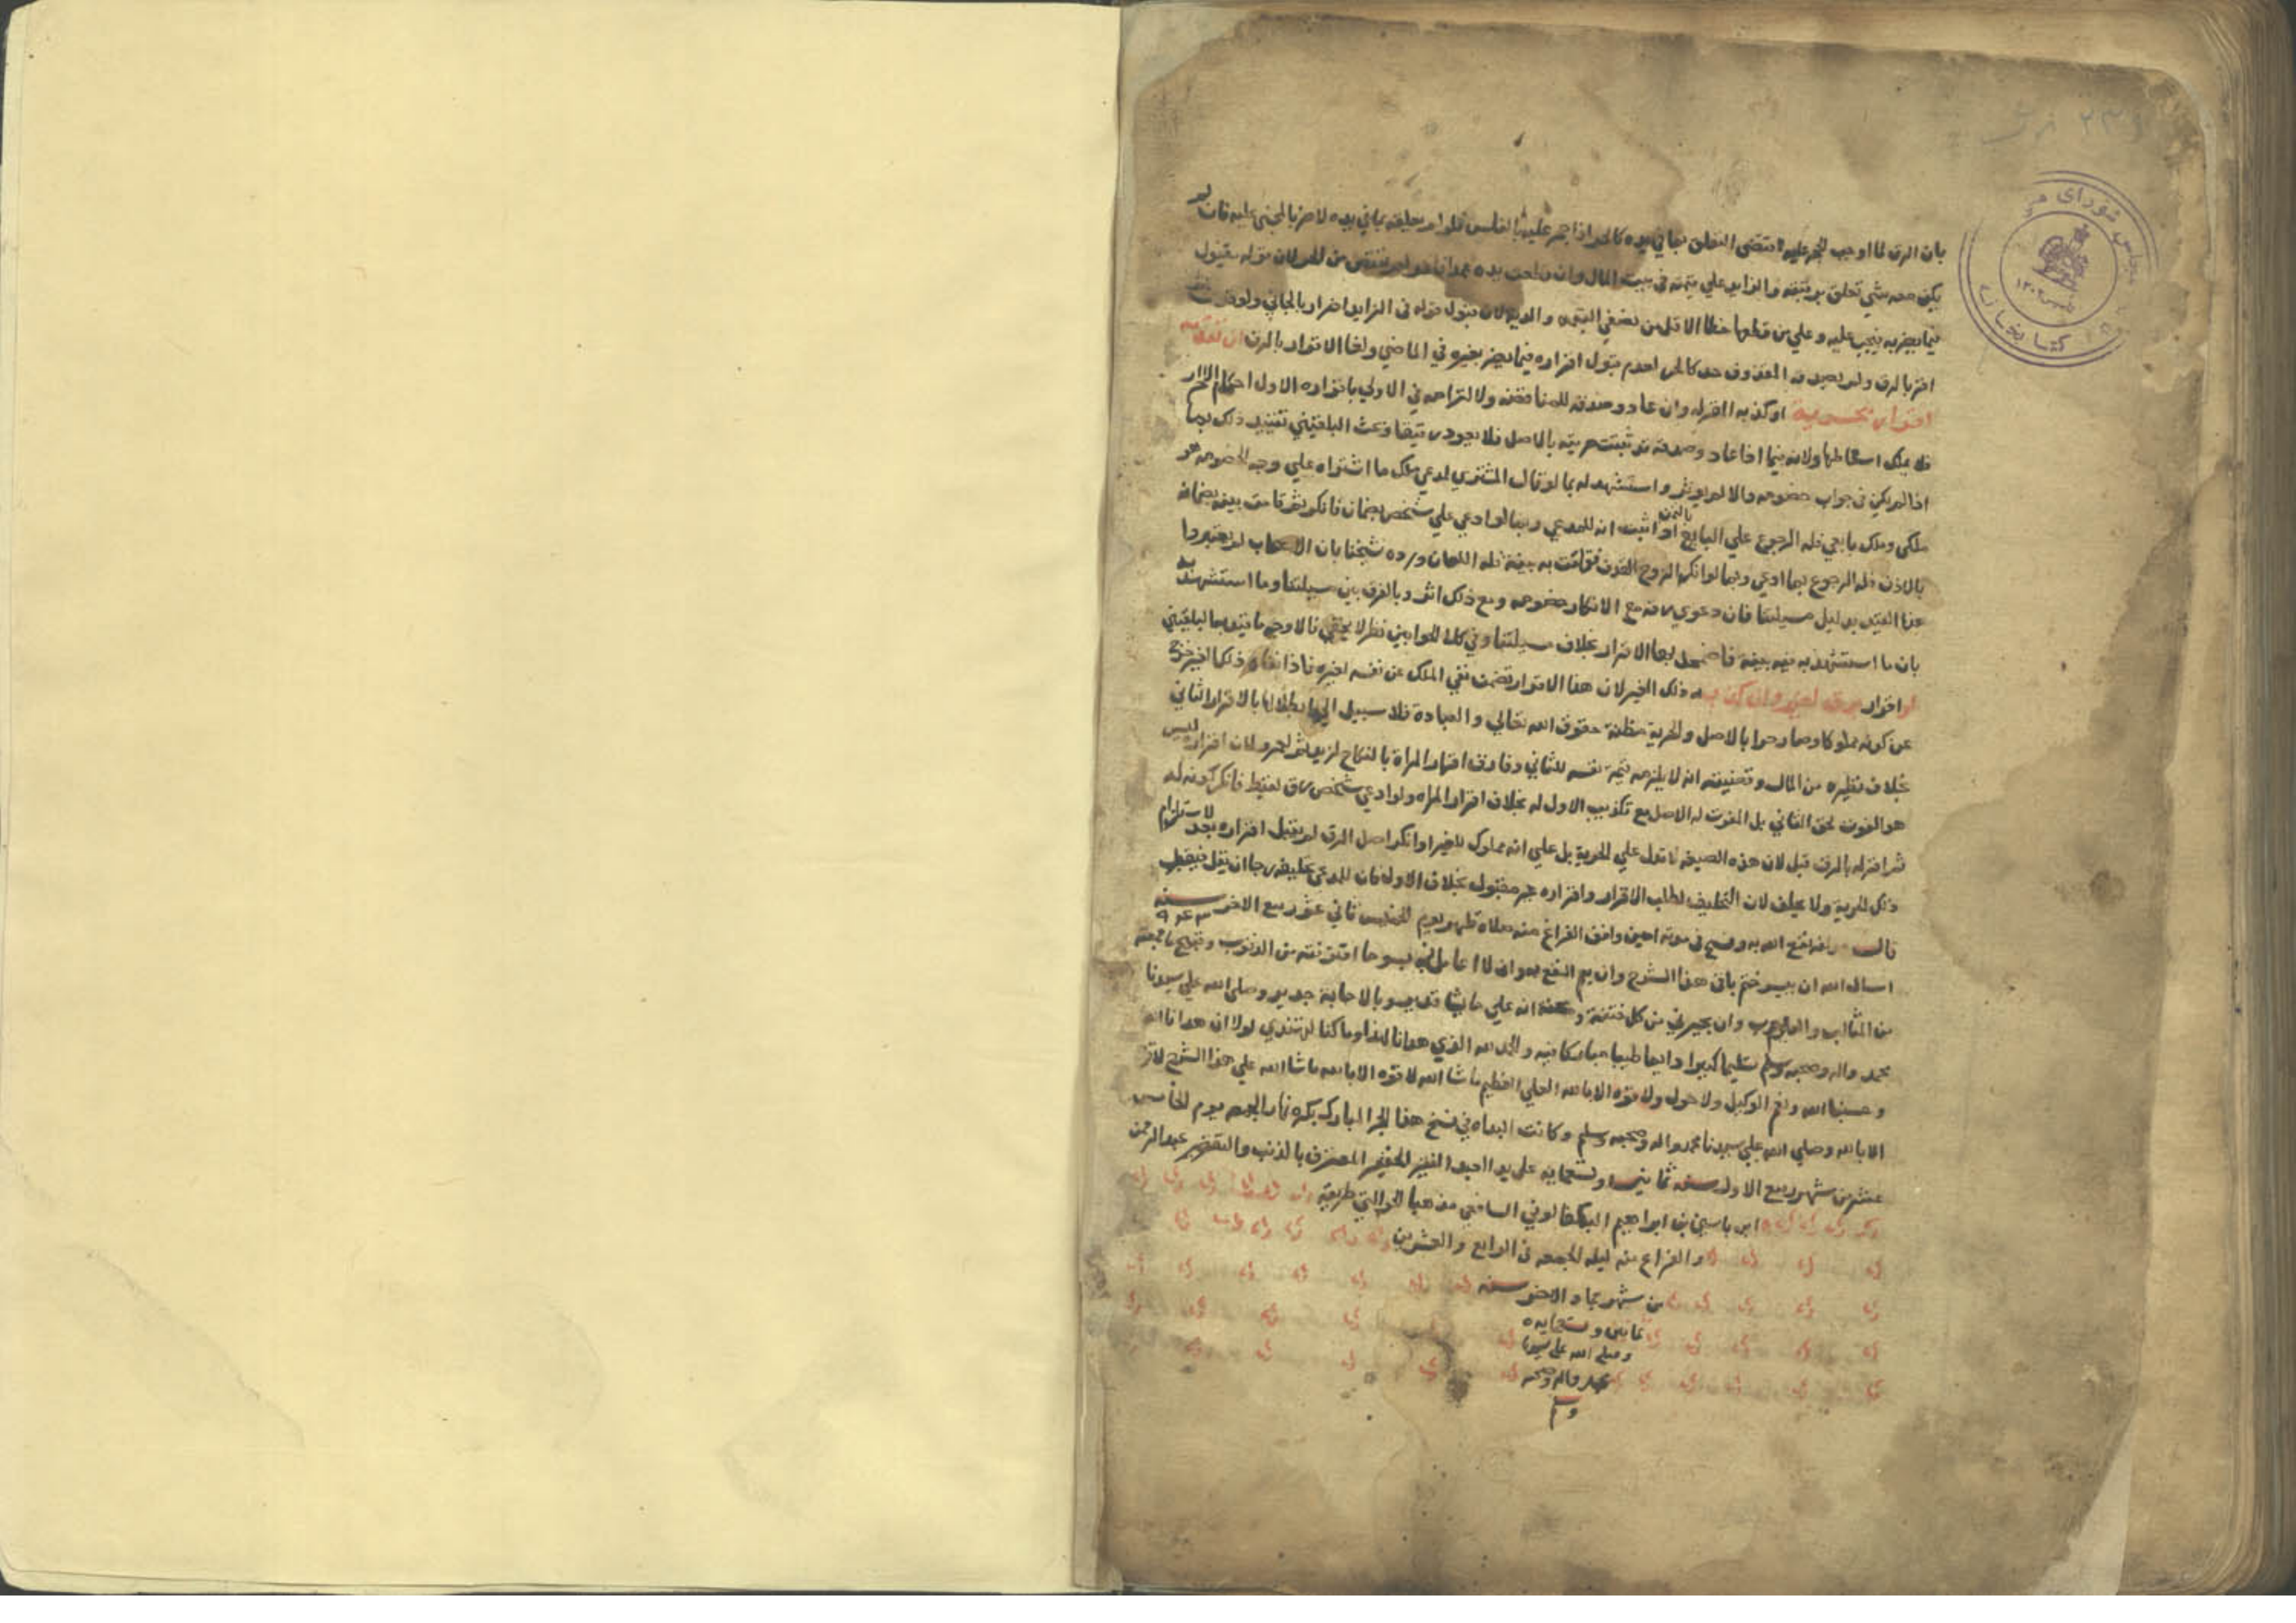 بان الرق لما اوجب الحجر عليه اقتضى التعلق بما في يده كالحر اذا حجر عليه بالفلس فلو لم يعلقه بما في يده لاضر بالمجني عليه فان لم
يكن معه شي تعلق برقبته والزايد علي قيمته في بيت المال وان قطعت يده عمدا من القن لان قوله مقبول
فيما يضر به فيجب عليه وعلي من قطعها خطا الاقل من نصفي القيمة والدية لان قبول قوله في الزايد اضرار بالجاني ولو
اقر بالرق ولم يصدقه المقذوف حد كالحر لعدم قبول اقراره فيما يضر بغيره في الماضي ولغا الاقرار بالرق ان تقدمه
اقرار بحرية او كذبه المقر له وان عاد وصدقه للمناقضة ولالتزامه في الاولي باقراره الاول احكام الاحرار
فلا يملك اسقاطها ولانه فيما اذا عاد وصدقه قد ثبتت حريته بالاصل فلا يعود رقيقا وبحث البلقيني تقييد ذلك بما
اذا لم يكن في جواب خصومه والا لم يوثر واستشهد له بما لو قال المشتري لمدعي ملك ما اشتراه علي وجه الخصومه هو
ملكي وملك بايعي فله الرجوع علي البايع بالثمن اذا اثبت انه للمدعي وبما لو ادعي علي شخص بضمان فانكر ثم قامت بينة بضمانه
بالاذن فله الرجوع بما ادي وبما لو انكر الزوج القذف فقامت به بينة فله اللعان ورده شيخنا بان الاصحاب لم يعتبروا
هذا القيد بدليل مسيلتنا فان دعوي رقه مع الانكار خصومه ومع ذلك اثر وبالفرق بين مسيلتنا وما استشهد به
بان ما استشهد به فيه بينة فاضمحل بها الاقرار بخلاف مسيلتنا وفي كلا الجوابين نظر لا يخفي فالاوجه ما قيد به البلقيني
او اقرار برق لغيره وان كذبه ذلك الغير لان هذا الاقرار تضمن نفي الملك عن نفسه لغيره فاذا نفاه ذلك الغير خرج
عن كونه مملوكا وصار حرا بالاصل والحرية مظنة حقوق الله تعالي والعبادة فلا سبيل الي ابطالها بالاقرار الثاني
بخلاف نظيره من المال وقضيته انه لا يلزمه قيمة نفسه للثاني وفارق اقرار المراة بالنكاح لزيد ثم لعمرو لان اقراره ليس
هو المفوت لحق الثاني بل المفوت له الاصل مع تكذيب الاول له بخلاف اقرار المراه ولو ادعي شخص رق لقيط فانكر كونه له
ثم اقر له بالرق قبل لان هذه الصيغه لا تدل علي الحرية بل علي انه مملوك للغير او انكر اصل الرق لم يقبل اقراره بعد لاستلزام
ذلك الحرية ولا يحلف لان التحليف لطلب الاقرار واقراره غير مقبول بخلاف الاول فان للمدعي تحليفه رجا ان يقر فيقبل
قال مولفه نفع الله به وفسح في مدته امين وافق الفراغ منه صلاة ظهر يوم الخميس ثاني عشر ربيع الاخر سنة
اسال الله ان ييسر ختم باقي هذا الشرح وان يعم النفع به وان لا اعامل فيه بسو ما اقترفته من الذنوب وقبيح ما جمعته
من المثالب والعيوب وان يجيرني من كل فتنة ومحنة انه علي ما يشا قدير وبالاجابة جدير وصلي الله علي سيدنا
محمد واله وصحبه وسلم تسليما كثيرا دايما طيبا مباركا فيه والحمد لله الذي هدانا لهذا وما كنا لنهتدي لولا ان هدانا الله
وحسبنا الله ونعم الوكيل ولا حول ولا قوه الا بالله العلي العظيم ما شا الله لا قوه الا بالله ما شا الله علي هذا الشرح لا قوة
الا بالله وصلي الله علي سيدنا محمد واله وصحبه وسلم وكانت البداه في نسخ هذا الجز المبارك بكرة نهار الجمعه يوم الخامس
عشر من شهر ربيع الاول سنة ثمانين وتسعمايه علي يد العبد الفقير الحقير المعترف بالذنب والتقصير عبد الرحمن
ابن ياسين بن ابراهيم الشافعي مذهبا طريقة
والفراغ منه ليله الجمعه في الرابع والعشرين
من شهر جماد الاخر سنه
ثمانين وتسعمايه
وصلي الله علي سيدنا
محمد واله وصحبه
وسلم
مجلس شورای ملی
کتابخانه